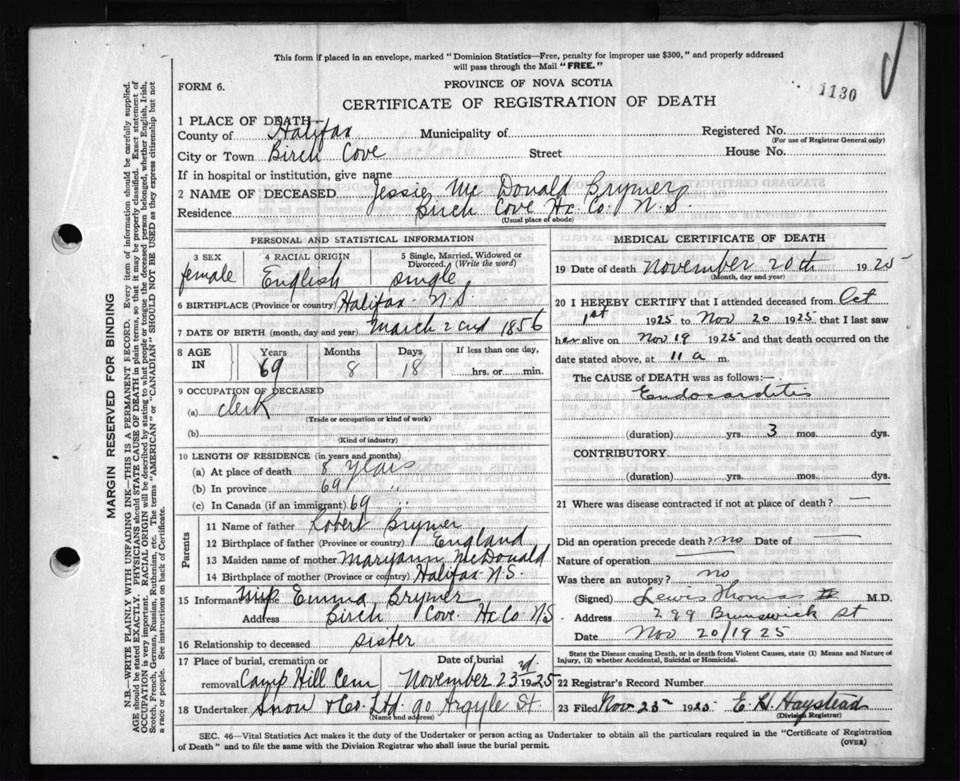 This form if placed in an envelope, marked "Dominion Statistics—Free, penalty for improper use $300," and properly addressed
will pass through the Mail "FREE."
FORM 6.
PROVINCE OF NOVA SCOTIA
1130
CERTIFICATE OF REGISTRATION OF DEATH
1 PLACE OF DEATH—
County of Halifax Municipality of Registered No.
(For use of Registrar General only)
City or Town Birch Cove Street House No.
If in hospital or institution, give name
2 NAME OF DECEASED Jessie Mc Donald Brymer
Residence Birch Cove Hx. Co. N.S.
(Usual place of abode)
PERSONAL AND STATISTICAL INFORMATION
3 SEX 4 RACIAL ORIGIN 5 Single, Married, Widowed or
Divorced. (Write the word)
female English single
6 BIRTHPLACE (Province or country) Halifax N.S.
7 DATE OF BIRTH (month, day and year) March 2nd 1856
8 AGE IN Years Months Days If less than one day,
69 8 18 hrs. or min.
9 OCCUPATION OF DECEASED
(a) clerk
(Trade or occupation or kind of work)
(b)
(Kind of industry)
10 LENGTH OF RESIDENCE (in years and months)
(a) At place of death 8 years
(b) In province 69 "
(c) In Canada (if an immigrant) 69 "
Parents
11 Name of father Robert Brymer
12 Birthplace of father (Province or country) England
13 Maiden name of mother Maryann McDonald
14 Birthplace of mother (Province or country) Halifax N.S.
15 Informant's name Emma Brymer
Address Birch Cove Hx Co N S
16 Relationship to deceased sister
17 Place of burial, cremation or Date of burial
removal Camp Hill Cem November 23rd 1925
18 Undertaker Snow & Co. Ltd 90 Argyle St.
(Name and address)
MEDICAL CERTIFICATE OF DEATH
19 Date of death November 20th 1925
(Month, day and year)
20 I HEREBY CERTIFY that I attended deceased from Oct
1st 1925 to Nov 20 1925 that I last saw
her alive on Nov 19 1925 and that death occurred on the
date stated above, at 11 a m.
The CAUSE OF DEATH was as follows:—
Endocarditis
(duration) yrs. 3 mos. dys.
CONTRIBUTORY.
(duration) yrs. mos. dys.
21 Where was disease contracted if not at place of death? —
Did an operation precede death? no Date of —
Nature of operation
Was there an autopsy? no
(Signed) Lewis Thomas M.D.
Address 299 Brunswick St
Date Nov 20/1925
State the Disease causing Death, or in death from Violent Causes, state (1) Means and Nature of
Injury, (2) whether Accidental, Suicidal or Homicidal.
22 Registrar's Record Number
23 Filed Nov 23 1925 E. H. Haystead
(Division Registrar)
SEC. 46—Vital Statistics Act makes it the duty of the Undertaker or person acting as Undertaker to obtain all the particulars required in the "Certificate of Registration
of Death" and to file the same with the Division Registrar who shall issue the burial permit.
(OVER)
MARGIN RESERVED FOR BINDING
N.B.—WRITE PLAINLY WITH UNFADING INK—THIS IS A PERMANENT RECORD. Every item of information should be carefully supplied.
AGE should be stated EXACTLY. PHYSICIANS should STATE CAUSE OF DEATH in plain terms, so that it may be properly classified. Exact statement of
OCCUPATION is very important. RACIAL ORIGIN will be described by stating to what people or tongue the deceased person belonged, whether English, Irish,
Scotch, French, German, Russian, Ruthenian, etc. The terms "AMERICAN" or "CANADIAN" SHOULD NOT BE USED as they express citizenship but not
a race or people. See instructions on back of Certificate.